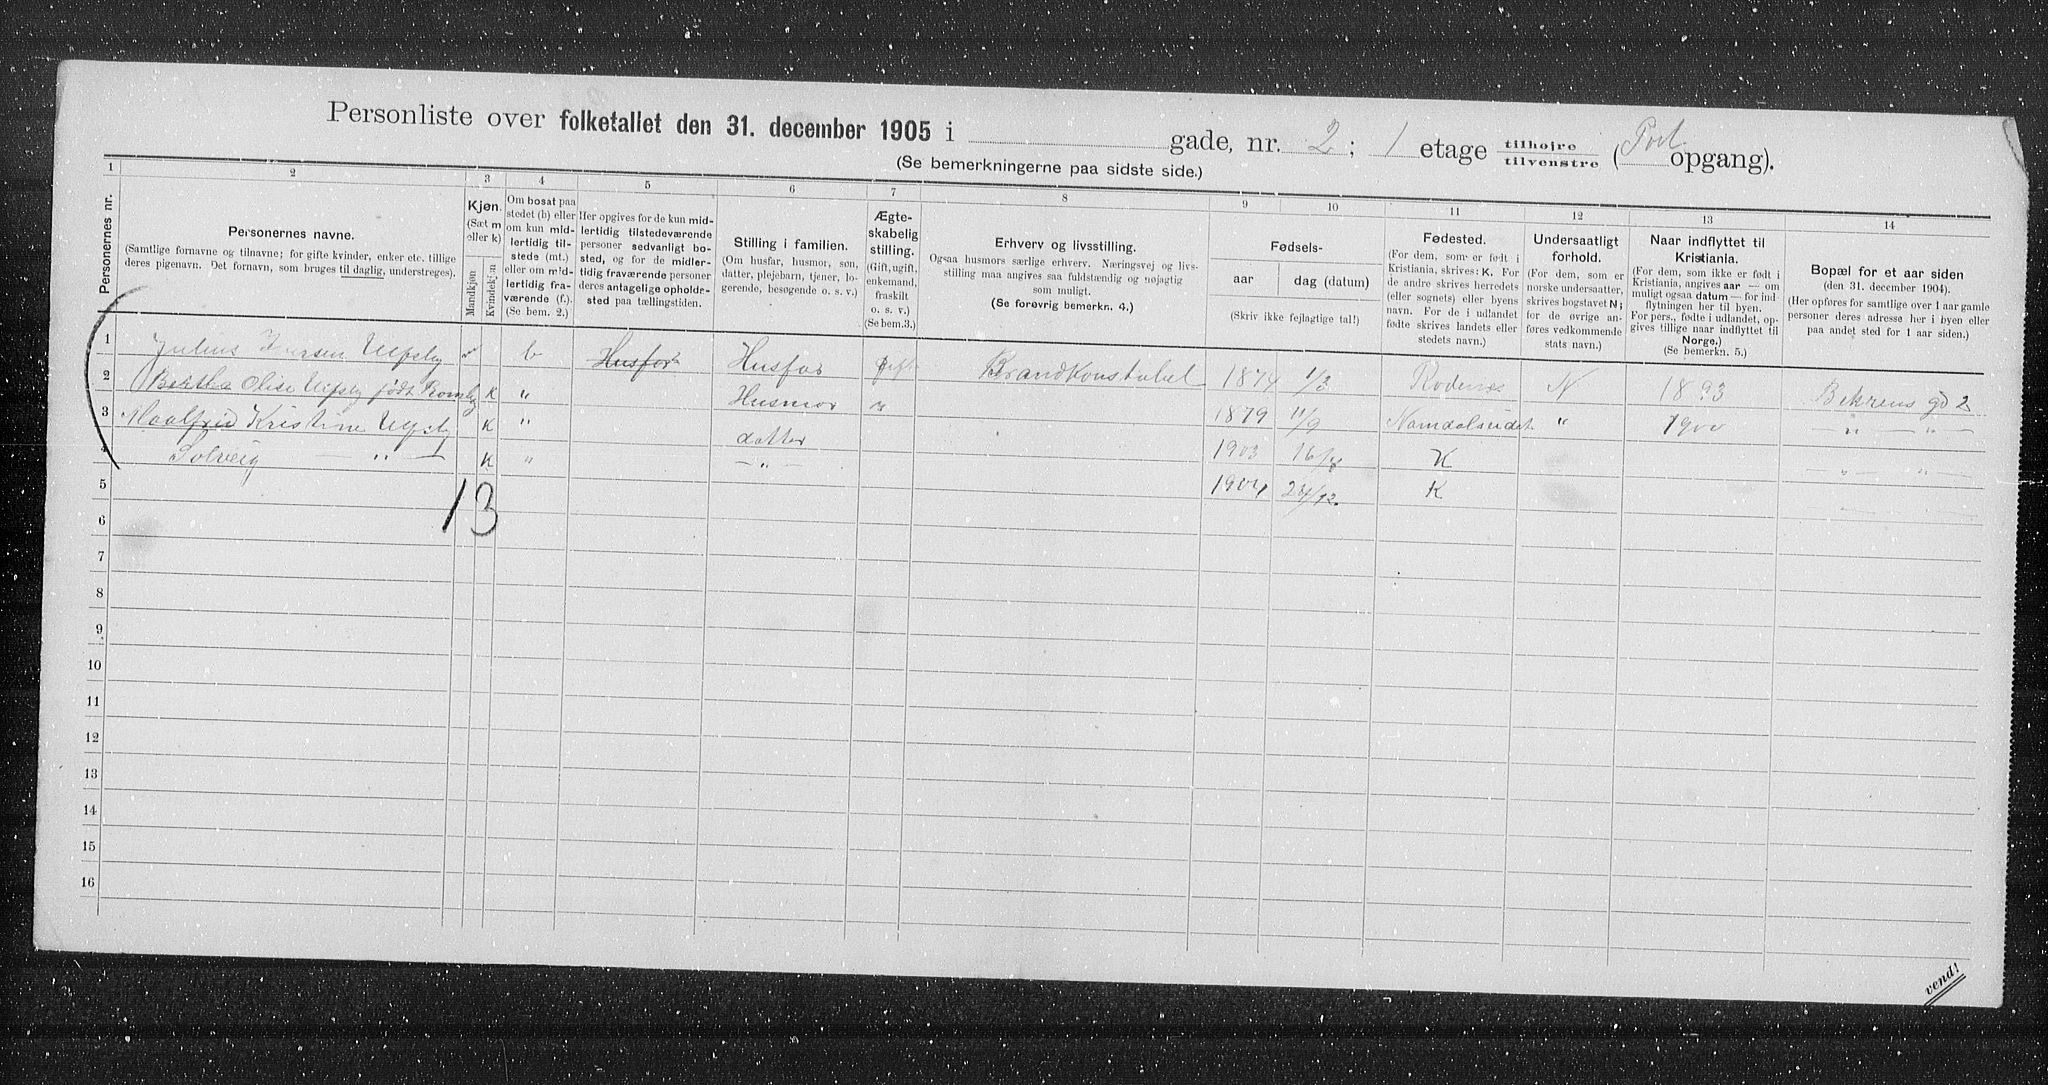 Personliste over folketallet den 31. december 1905 i gade, nr. 2; 1 etage tilhøjre tilvenstre (Port opgang).
(Se bemerkningerne paa sidste side.)
1 2 3 4 5 6 7 8 9 10 11 12 13 14
Personernes nr.
Personernes navne.
(Samtlige fornavne og tilnavne; for gifte kvinder, enker etc. tillige
deres pigenavn. Det fornavn, som bruges til daglig, understreges).
Kjøn.
(Sæt m
eller k)
Mandkjøn
Kvindekjøn
Om bosat paa
stedet (b) eller
om kun mid-
lertidig til-
stede (mt.)
eller om mid-
lertidig fra-
værende (f.).
(Se bem. 2.)
Her opgives for de kun mid-
lertidig tilstedeværende
personer sedvanligt bo-
sted, og for de midler-
tidig fraværende personer
deres antagelige opholdr-
sted paa tællingstiden.
Stilling i familien.
(Om husfar, husmor, søn,
datter, plejebarn, tjener, lo-
gerende, besøgende o. s. v.)
Ægte-
skabelig
stilling.
(Gift, ugift,
enkemand,
fraskilt
o. s. v.)
(Se bem.3.)
Erhverv og livsstilling.
Ogsaa husmors særlige erhverv. Næringsvej og livs-
stilling maa angives saa fuldstændig og nøjagtig
som muligt.
(Se forøvrig bemerkn. 4.)
Fødsels-
aar
dag (datum)
(Skriv ikke fejlagtige tal!)
Fødested.
(For dem, som er født i
Kristiania, skrives: K. For
de andre skrives herredets
(eller sognets) eller byens
navn. For de i udlandet
fødte skrives landets eller
stedets navn.)
Undersaatligt
forhold.
(For dem, som er
norske undersaatter,
skrives bogstavet N;
for de øvrige an-
føres vedkommende
stats navn.)
Naar indflyttet til
Kristiania.
(For dem, som ikke er født i
Kristiania, angives aar — om
muligt ogsaa datum — for ind-
flytningen her til byen.
For pers., fødte i udlandet, op-
gives tillige naar indflyttet til
Norge.)
(Se bemerkn. 5.)
Bopæl for et aar siden
(den 31. december 1904).
(Her opføres for samtlige over 1 aar gamle
personer deres adresse her i byen eller
paa andet sted for 1 aar siden.)
1 Julius Hansen Ulfsby m b Husfar Husfar gift Brandkonstabel 1874 1/3 Rodenes N 1893 Behrens gd 2
2 Bertha Olise Ulfsby født K " Husmor " 1879 11/9 Namdalseidet " 1900 " "
3 Maalfrid Kristine Ulfsby K " datter 1903 K " "
4 Solveig — " — K " — " — 1904 24/12. K
1 3
5
6
7
8
9
10
11
12
13
14
15
16
vend!